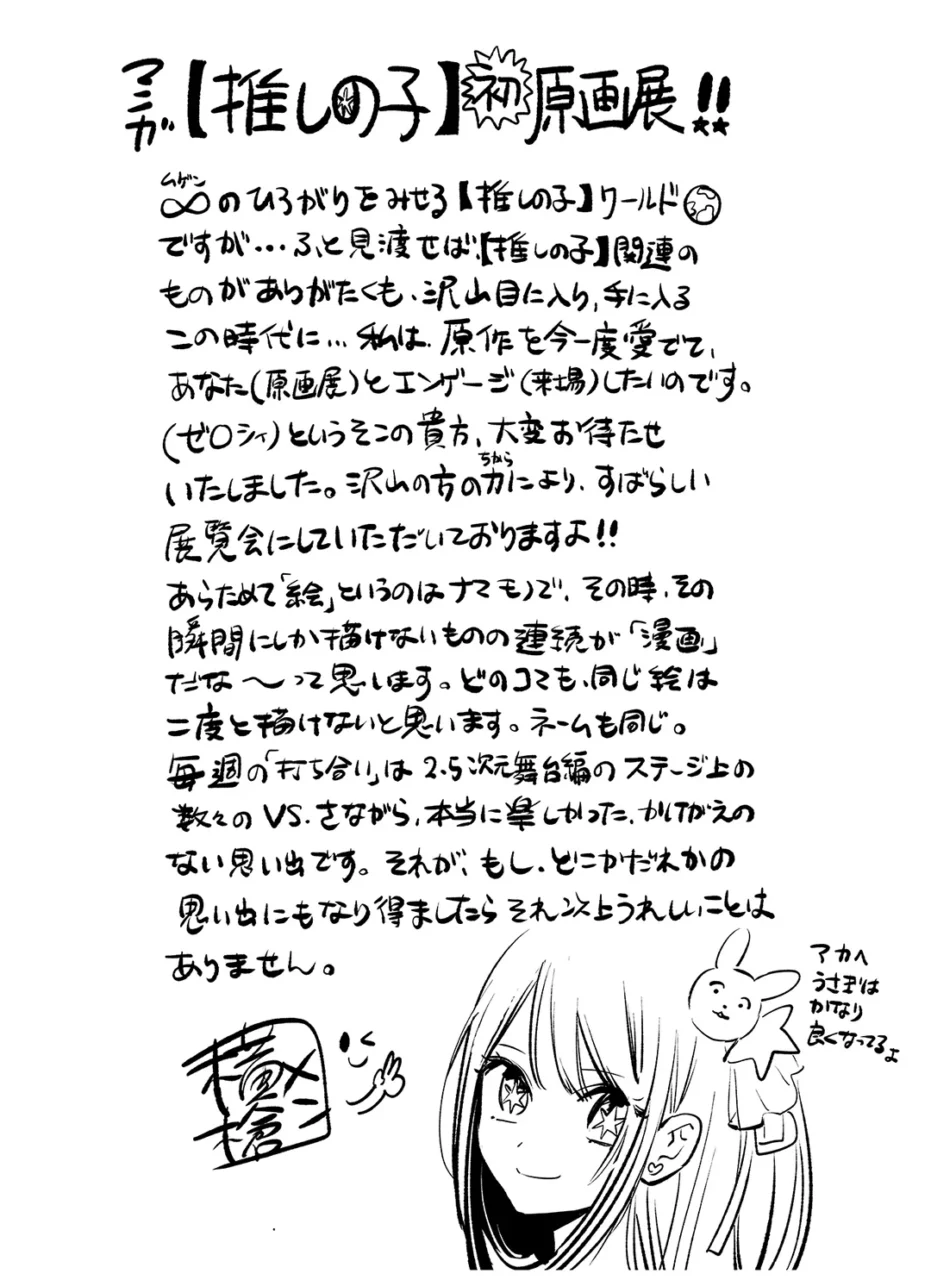 マンガ【推しの子】初原画展!!
ムゲン
∞のひろがりをみせる【推しの子】ワールド
ですが…ふと見渡せば、【推しの子】関連の
ものがありがたくも、沢山目に入り、手に入る
この時代に…私は、原作を今一度愛でて、
あなた(原画展)とエンゲージ(来場)したいのです。
(ゼ〇シィ)というそこの貴方、大変お待たせ
ちから
いたしました。沢山の方の力により、すばらしい
展覧会にしていただいておりますよ!!
あらためて「絵」というのはナマモノで、その時、その
瞬間にしか描けないものの連続が「漫画」
だな〜って思います。どのコマも、同じ絵は
二度と描けないと思います。ネームも同じ。
毎週の「打ち合い」は2.5次元舞台編のステージ上の
数々のVS.さながら、本当に楽しかった、かけがえの
ない思い出です。それが、もし、どこかだれかの
思い出にもなり得ましたらそれ以上うれしいことは
ありません。
アカへ
うさぎは
かなり
良くなってるよ
横槍メンゴ